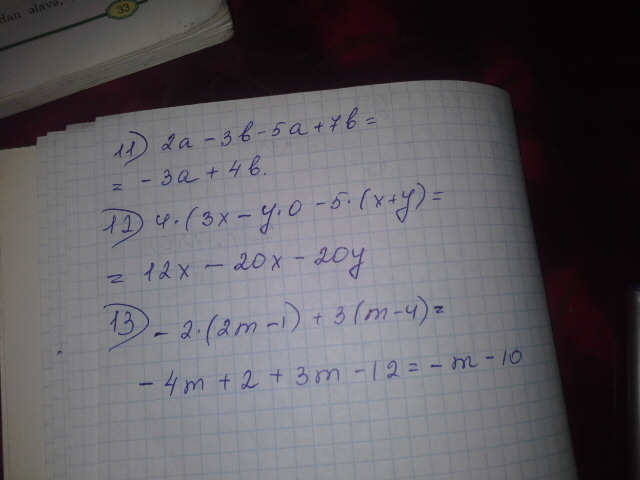 dan əlavə,
33
11) 2a - 3b - 5a + 7b =
= - 3a + 4b.
12) 4·(3x - y·0 - 5·(x+y) =
= 12x - 20x - 20y
13) - 2·(2m - 1) + 3(m - 4) =
- 4m + 2 + 3m - 12 = - m - 10